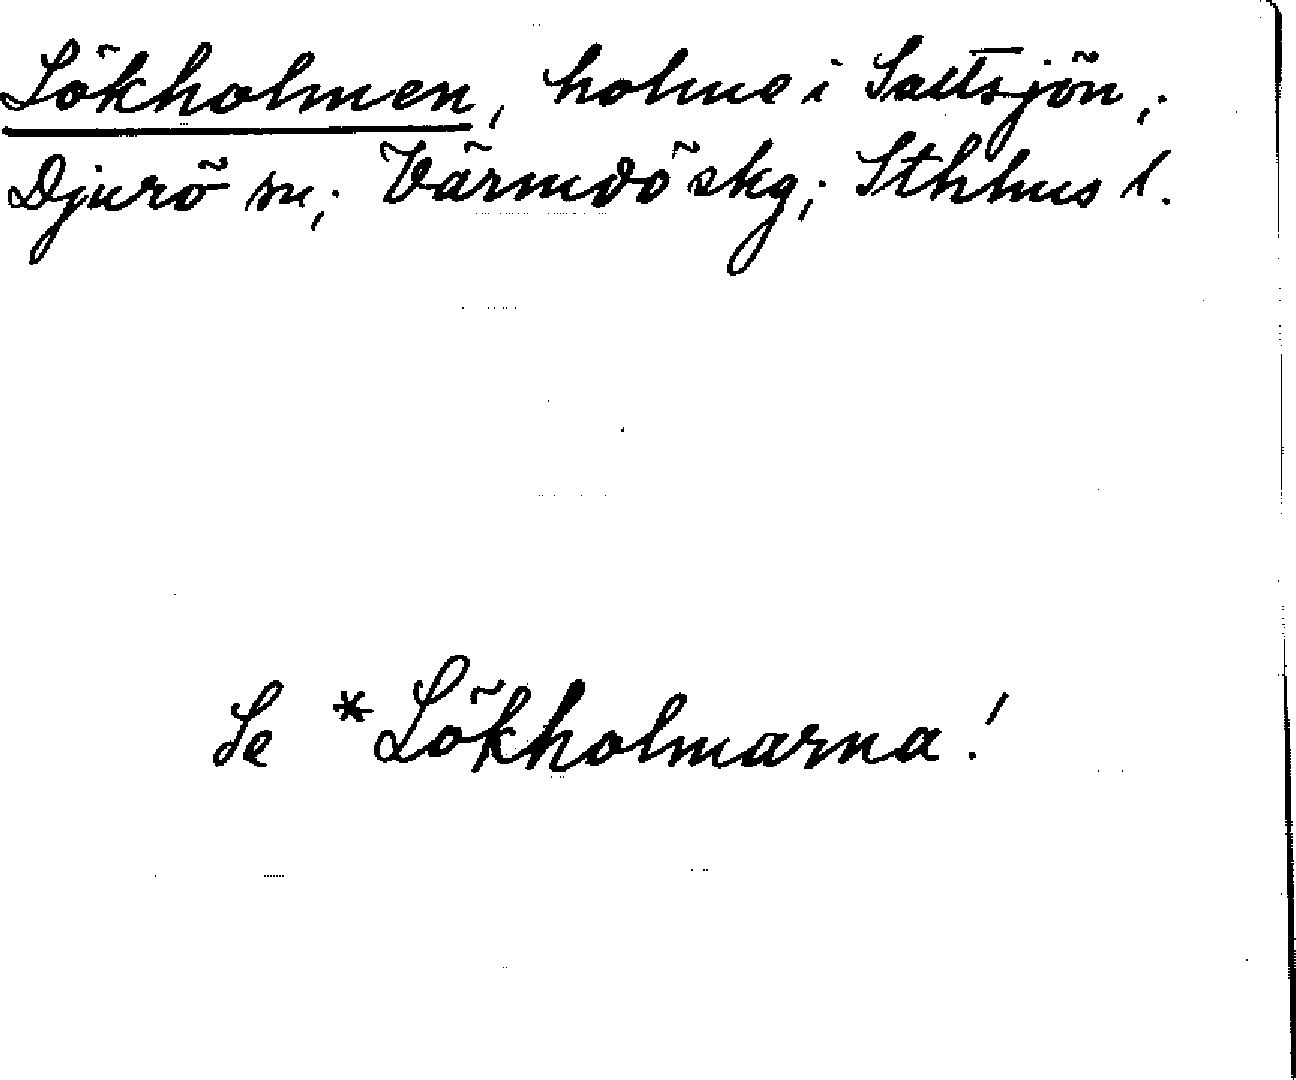 Lökholmen, holme i Saltsjön;
Djurö sn; Värmdö skg; Sthlms l.
Se *Lökholmarna!